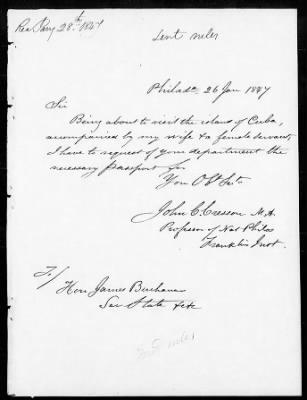 Rec Jany 28th 1847
Sent rules
Philada 26 Jan 1847
Sir
Being about to visit the island of Cuba,
accompanied by my wife & a female servant,
I have to request of your department the
necessary Passport for
Your Obt Svt
John C. Cresson M.A.
Professor of Nat Philos
Franklin Inst.
To/
Hon James Buchanan
Sec State &c &c